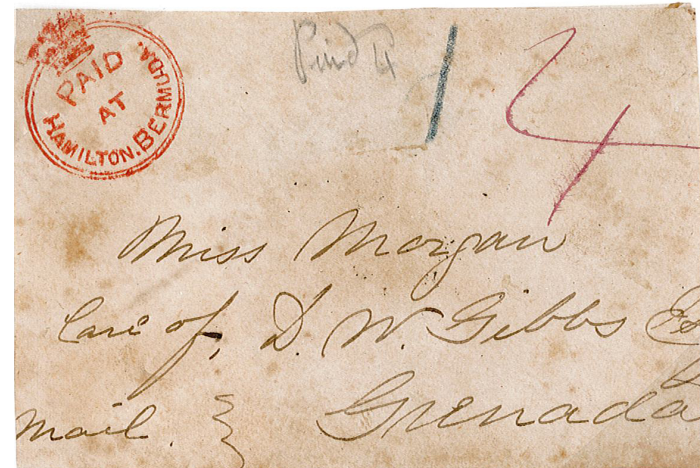 PAID
AT
HAMILTON. BERMUDA.
Paid 4
1 4
Miss Morgan
Care of, D. W. Gibbs
Grenada
Mail.